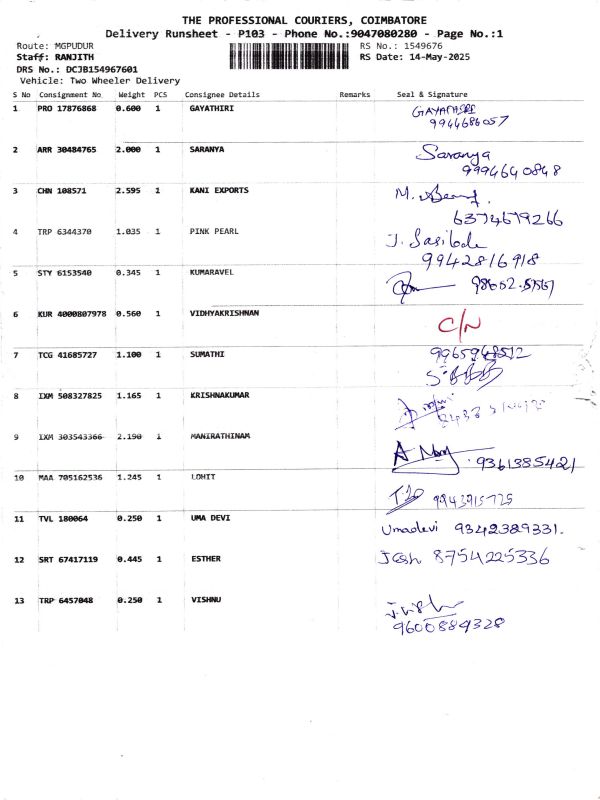 THE PROFESSIONAL COURIERS, COIMBATORE
Delivery Runsheet - P103 - Phone No.:9047080280 - Page No.:1
Route: MGPUDUR RS No.: 1549676
Staff: RANJITH RS Date: 14-May-2025
DRS No.: DCJB154967601
Vehicle: Two Wheeler Delivery
S No Consignment No Weight PCS Consignee Details Remarks Seal & Signature
1 PRO 17876868 0.600 1 GAYATHIRI
9944686057
2 ARR 30484765 2.000 1 SARANYA Saranya
9994640848
3 CHN 108571 2.595 1 KANI EXPORTS M.
6374679266
4 TRP 6344370 1.035 1 PINK PEARL J.
9942816918
5 STY 6153540 0.345 1 KUMARAVEL
6 KUR 4000807978 0.560 1 VIDHYAKRISHNAN C/N
7 TCG 41685727 1.100 1 SUMATHI
8 IXM 508327825 1.165 1 KRISHNAKUMAR
9 IXM 303543366 2.190 1 MANIRATHINAM
9361385421
10 MAA 705162536 1.245 1 LOHIT
9943915725
11 TVL 180064 0.250 1 UMA DEVI Umadevi 9342389331.
12 SRT 67417119 0.445 1 ESTHER 8754225336
13 TRP 6457048 0.250 1 VISHNU
9600884328